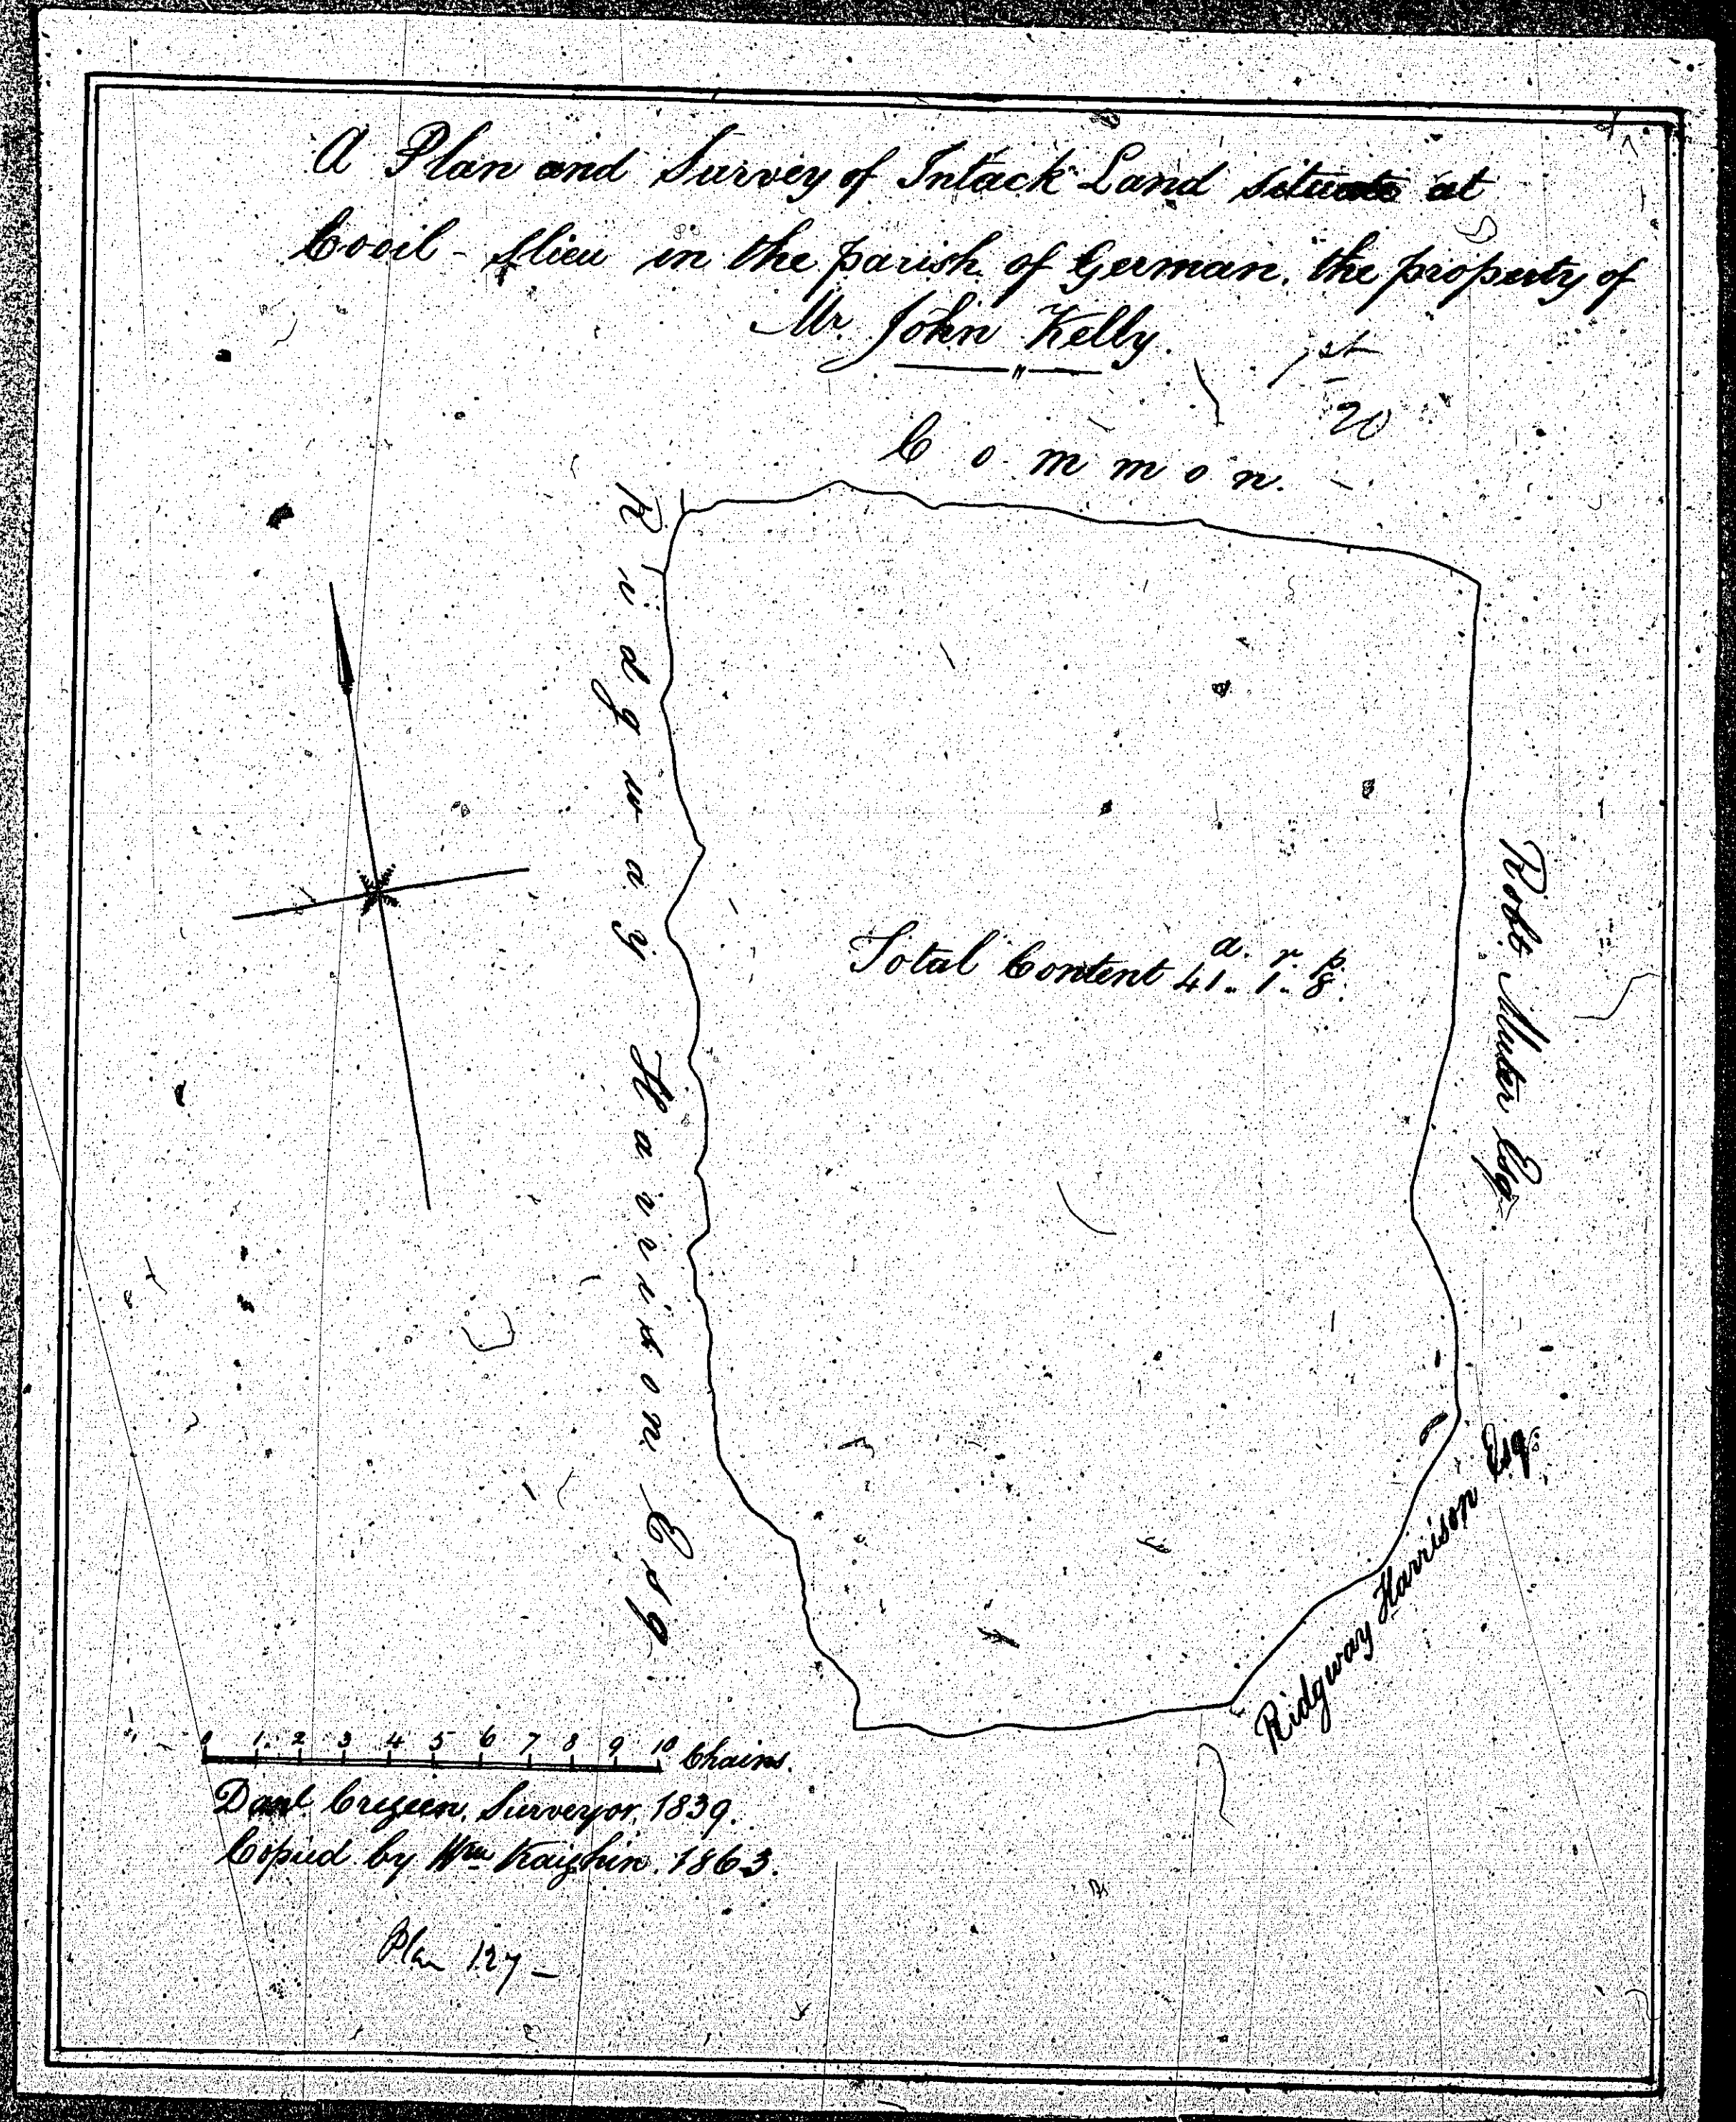 A Plan and Survey of Intack Land situate at
Cooil-slieu in the parish of German, the property of
Mr. John Kelly.
20
Common.
Ridgway Harrison Esq
Total Content 41.. 1.. 8.
a. r. p.
Robt.
Esq.
Ridgway Harrison Esq.
0 1 2 3 4 5 6 7 8 9 10 Chains.
Danl Cregeen, Surveyor, 1839.
Copied by Wm Kaighin. 1863.
Plan 127